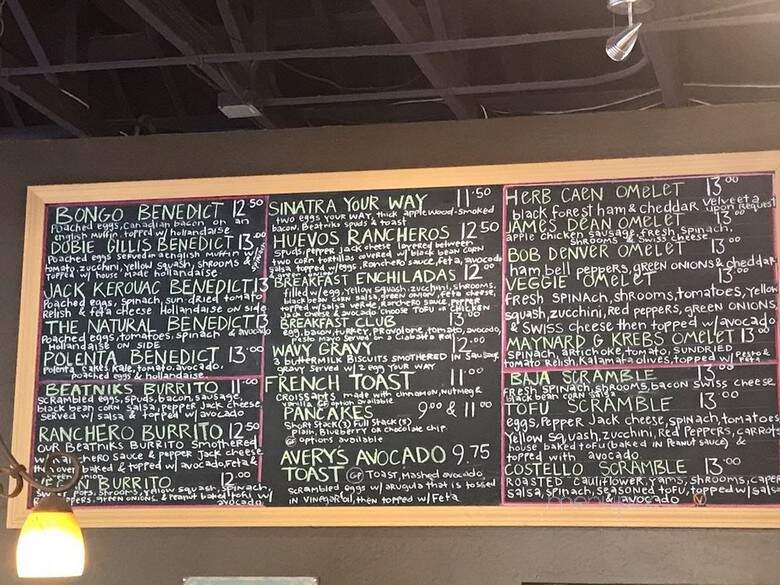 BONGO BENEDICT 12.50
Poached eggs, Canadian bacon on an
english muffin. topped w/ hollandaise
DOBIE GILLIS BENEDICT 13.00
Poached eggs served on english muffin w/
tomato, zucchini, yellow squash, shrooms &
topped w/ house made hollandaise
JACK KEROUAC BENEDICT 13
Poached eggs, Spinach, sun-dried tomato
Relish & feta cheese Hollandaise on side
THE NATURAL BENEDICT 13
Poached eggs, tomatoes, spinach & avocado
Hollandaise ON SIDE
POLENTA BENEDICT 13.00
Polenta cakes, Kale, tomato, avocado,
poached eggs & hollandaise
BEATNIK BURRITO 11.00
SCRambled eggs, spuds, bacon, sausage,
black bean corn salsa, pepper Jack cheese,
served w/ salsa & topped w/ avocado
RANCHERO BURRITO 12.50
OUR Beatniks Burrito Smothered
w/ Ranchero sauce & pepper Jack cheese
then oven baked & topped w/ avocado, Feta &
BURRITO 12.00
shrooms, yellow squash, spinach,
green onions, & peanut baked tofu w/
avocado
SINATRA YOUR WAY 11.50
two eggs your WAY, thick applewood-smoked
bacon, Beatniks spuds & toast
HUEVOS RANCHEROS 12.50
Spuds, pepper jack cheese layered between
two corn tortillas covered w/ black bean corn
salsa topped w/eggs, Ranchero sauce, feta, avocado
BREAKFAST ENCHILADAS 12.00
filled w/ egg, yellow squash, zucchini, shrooms,
black bean corn salsa, green onion, feta cheese,
topped w/ salsa verde, Ranchero sauce, pepper
jack cheese & avocado Choose TOFU or CHICKEN
BREAKFAST CLUB 13.00
egg, bacon, turkey, provolone, tomato, avocado,
pesto mayo Served on a Ciabatta Roll
WAVY GRAVY 12.00
2 buttermilk Biscuits smothered IN Sausage
gravy Served w/ 2 egg YOUR WAY
FRENCH TOAST 11.00
CROISSANTS made with cinnamon, nutmeg &
vanilla GF option available
PANCAKES 9.00 & 11.00
Short Stack(2) Full Stack(3)
Plain, Blueberry or chocolate chip
GF options available
AVERYS AVOCADO 9.75
TOAST GF TOAST, Mashed avocado,
scrambled eggs w/ arugula that is tossed
in vinegar oil, then topped w/ Feta
HERB CAEN OMELET 13.00
black forest ham & cheddar Velveeta upon Request
JAMES DEAN OMELET 13.00
apple chicken sausage, fresh spinach,
SHROOMS & Swiss cheese
BOB DENVER OMELET 13.00
ham, bell peppers, green onions & cheddar
VEGGIE OMELET 13.00
fresh SPINAch, shrooms, tomatoes, Yellow
squash, zucchini, Red peppers, green onions
& SWISS cheese then topped w/ avocado
MAYNARD G KREBS OMELET 13.00
SPINACH, artichoke, tomato, SUNDRIED
tomato Relish, Kalamata olives, topped w/ Pesto &
BAJA SCRAMBLE 13.00
fresh SPINACH, shrooms, bacon, swiss cheese
black bean corn salsa
TOFU SCRAMBLE 13.00
eggs, Pepper Jack cheese, spinach, tomatoes
Yellow squash, zucchini, Red Peppers, carrots
house baked tofu (baked in Peanut sauce) &
topped with avocado
COSTELLO SCRAMBLE 13.00
ROASTED cauliflower, yams, shrooms, caper
salsa, Spinach, seasoned tofu, topped w/ salsa
& avocado